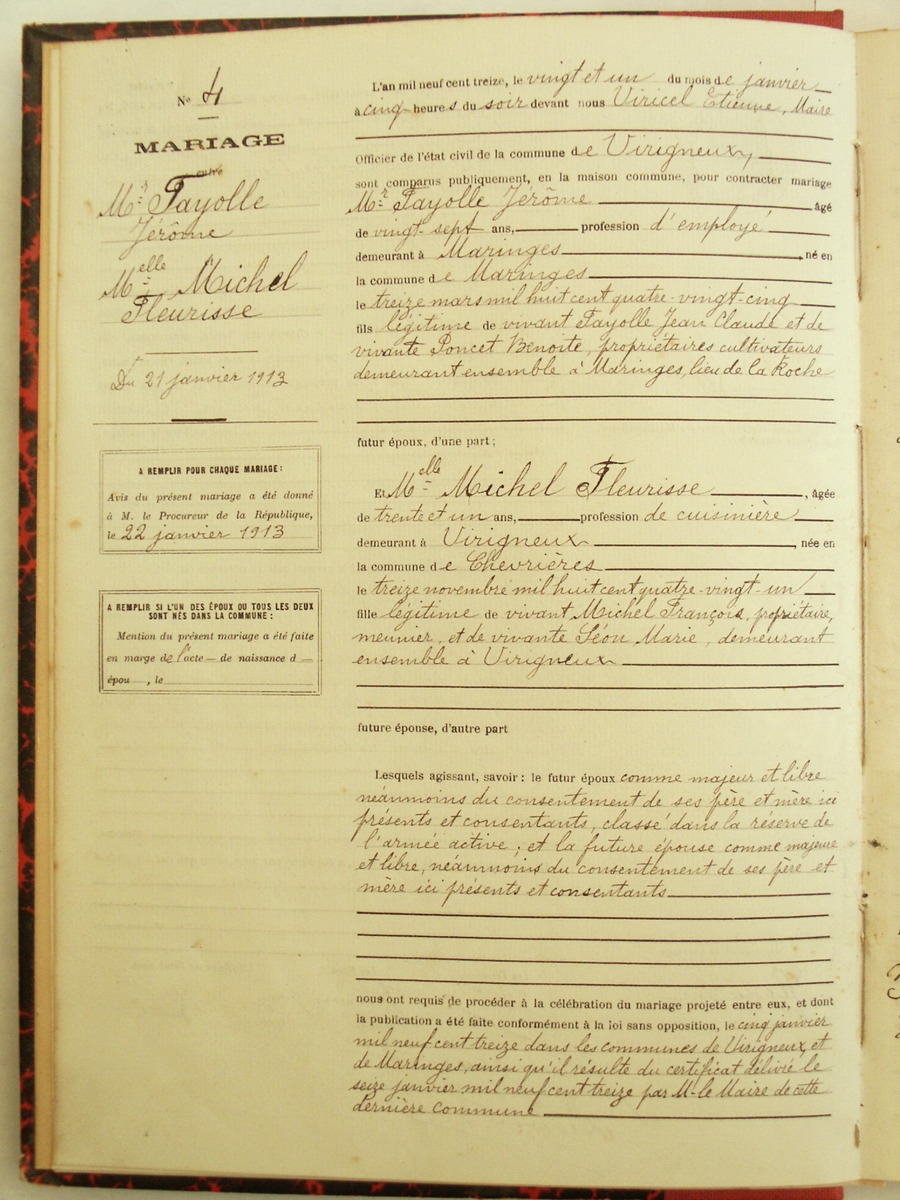 No 4
MARIAGE
entre
Mr Fayolle
Jérôme
Melle Michel
Fleurisse
Du 21 janvier 1913
A REMPLIR POUR CHAQUE MARIAGE :
Avis du présent mariage a été donné
à M. le Procureur de la République,
le 22 janvier 1913
A REMPLIR SI L'UN DES ÉPOUX OU TOUS LES DEUX
SONT NÉS DANS LA COMMUNE :
Mention du présent mariage a été faite
en marge de l'acte — de naissance d —
épou —, le
L'an mil neuf cent treize, le vingt et un du mois de janvier
à cinq heures du soir devant nous Viricel Etienne, Maire
Officier de l'état civil de la commune de Virigneux,
sont comparus publiquement, en la maison commune, pour contracter mariage
Mr Fayolle Jérôme âgé
de vingt-sept ans, profession d'employé
demeurant à Maringes, né en
la commune de Maringes
le treize mars mil huit cent quatre-vingt-cinq
fils légitime de vivant Fayolle Jean Claude et de
vivante Poncet Benoite, propriétaires cultivateurs
demeurant ensemble à Maringes, lieu de la Roche
futur époux, d'une part ;
Et Melle Michel Fleurisse, âgée
de trente et un ans, profession de cuisinière
demeurant à Virigneux, née en
la commune de Chevrières
le treize novembre mil huit cent quatre-vingt-un
fille légitime de vivant Michel François, propriétaire,
meunier, et de vivante Séon Marie, demeurant
ensemble à Virigneux
future épouse, d'autre part
Lesquels agissant, savoir : le futur époux comme majeur et libre
néanmoins du consentement de ses père et mère ici
présents et consentants, classé dans la réserve de
l'armée active ; et la future épouse comme majeure
et libre, néanmoins du consentement de ses père et
mère ici présents et consentants
nous ont requis de procéder à la célébration du mariage projeté entre eux, et dont
la publication a été faite conformément à la loi sans opposition, le cinq janvier
mil neuf cent treize dans les communes de Virigneux, et
de Maringes, ainsi qu'il résulte du certificat délivré le
seize janvier mil neuf cent treize par M. le Maire de cette
dernière commune